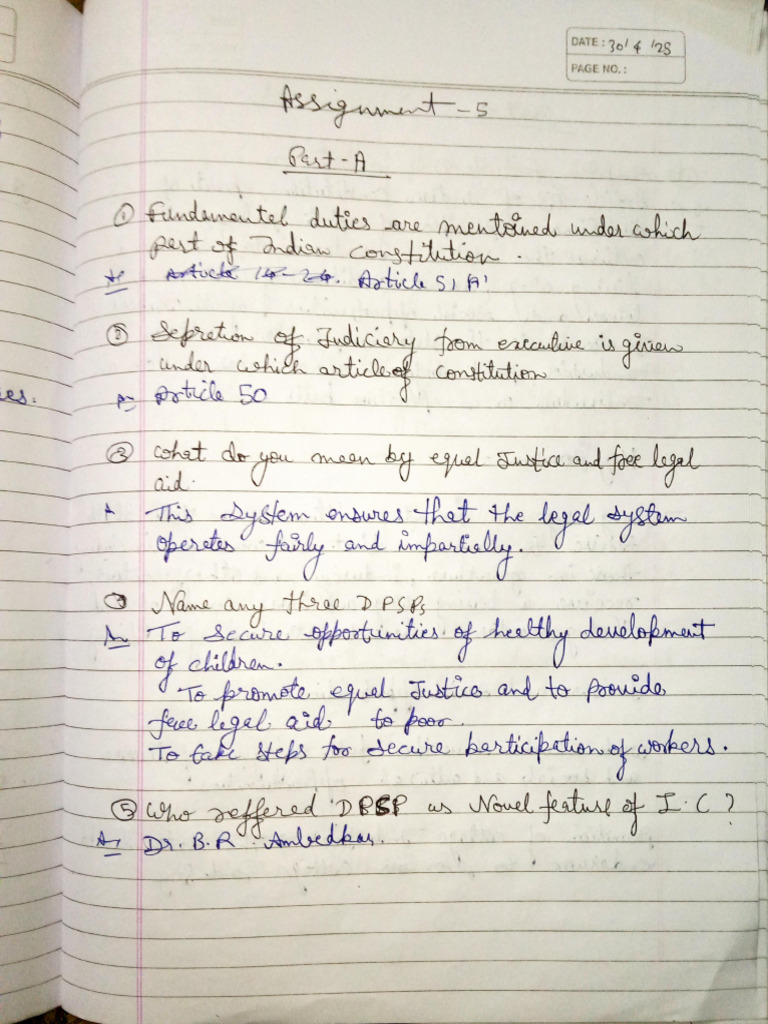 DATE: 30/4/25
PAGE NO.:
Assignment-5
Part-A
① Fundamental duties are mentoined under which
part of Indian constitution.
Article 14-24. Article 51 'A'
② Sepretion of Judiciary from executive is given
under which article of constitution
es.
A- Article 50
③ what do you mean by equal Justice and free legal
aid.
A- This system ensures that the legal system
operates fairly and impartially.
Name any three DPSPs
To secure opportunities of healthy development
of children.
To promote equal Justice and to provide
free legal aid to poor.
To take steps for secure participation of workers.
⑤ Who reffered DPSP as Novel feature of I.C?
Dr. B.R Ambedkar.